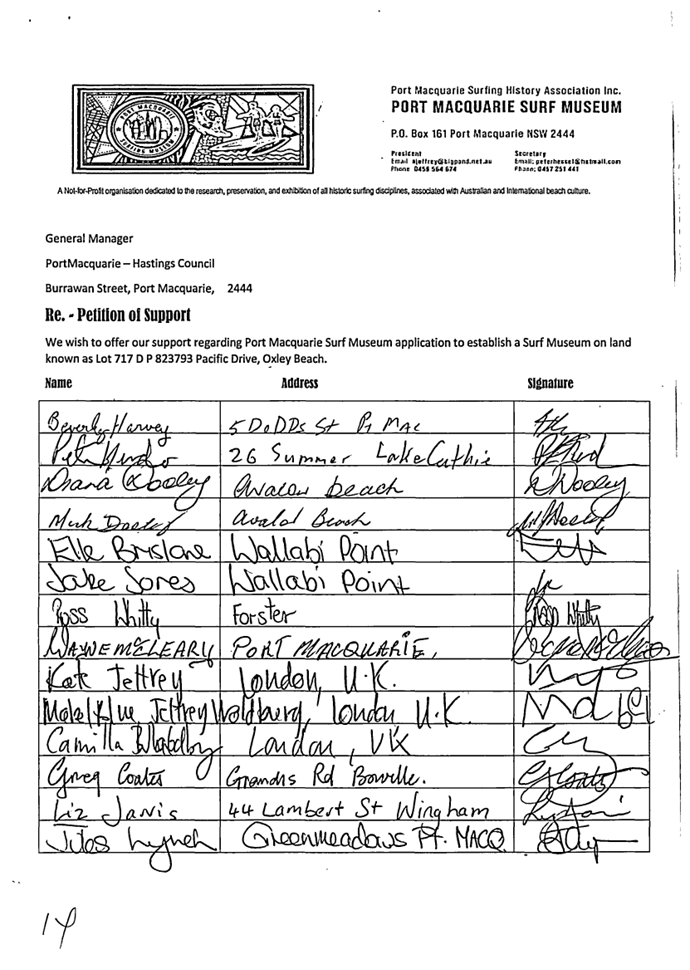 PORT MACQUARIE
SURFING MUSEUM
Port Macquarie Surfing History Association Inc.
PORT MACQUARIE SURF MUSEUM
P.O. Box 161 Port Macquarie NSW 2444
President Secretary
Email Email; peterhessel@hotmail.com
Phone 0458 564 674 Phone; 0457 251 441
A Not-for-Profit organisation dedicated to the research, preservation, and exhibition of all historic surfing disciplines, associated with Australian and International beach culture.
General Manager
PortMacquarie – Hastings Council
Burrawan Street, Port Macquarie, 2444
Re. - Petition of Support
We wish to offer our support regarding Port Macquarie Surf Museum application to establish a Surf Museum on land
known as Lot 717 D P 823793 Pacific Drive, Oxley Beach.
Name Address Signature
Beverly Harvey 5 DODDS St Pt MAC
26 Summer Lake Cathie
Diana Wooley Avalon beach Wooley
Mark Avalon Beach
Elle Brislane Wallabi Point
Jake Jones Wallabi Point
Ross Whitty Forster Ross Whitty
WAYNE MCLEARY PORT MACQUARIE,
Kate Jeffrey London, U.K.
Jeffrey London U.K.
Camilla London, UK
Greg Coates Rd Bonville. G Coates
Liz Jarvis 44 Lambert St Wingham
Lynch Greenmeadows Pt. MACQ
14